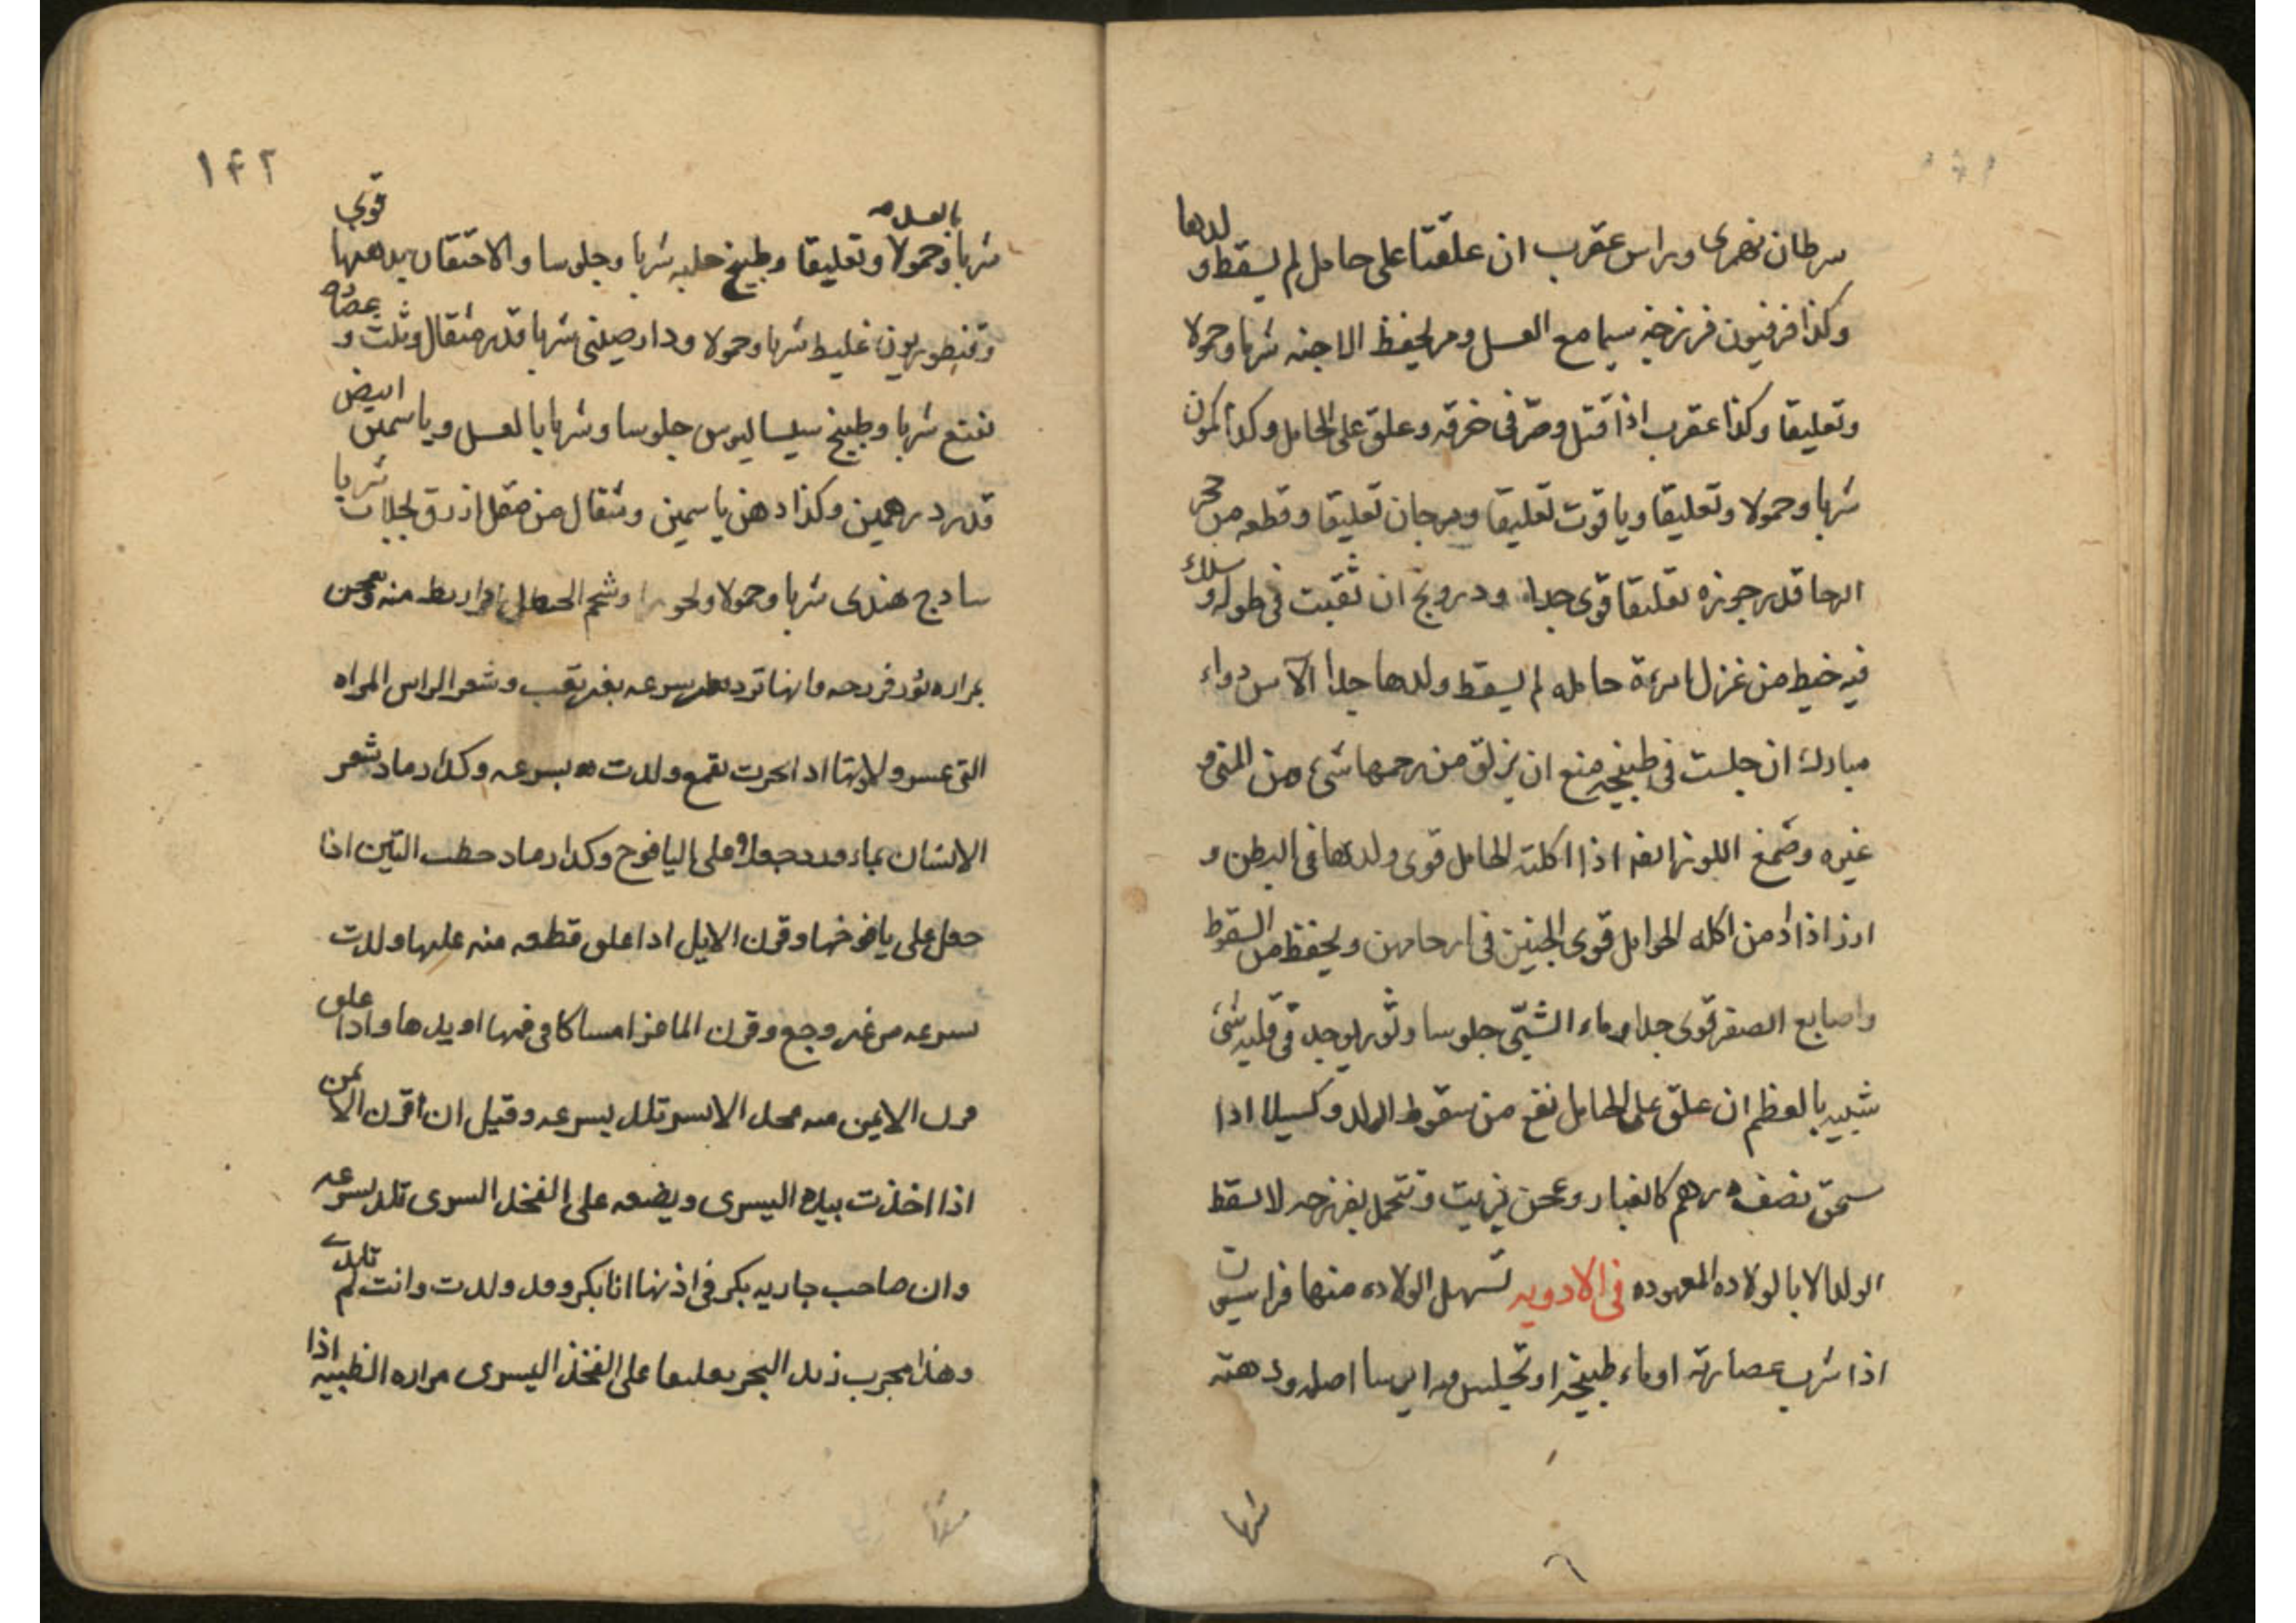 سرطان نهرى وراس عقرب ان علقتا على حامل لم يسقط ولدها
وكذا فرفيون فرزجه سيما مع العسل ومر يحفظ الاجنه شربا وحمولا
وتعليقا وكذا عقرب اذا قتل وصر فى خرقه وعلق على الحامل وكذا كمون
شربا وحمولا وتعليقا وياقوت تعليقا ومرجان تعليقا وقطعه من حجر
الرحا قدر جوزه تعليقا قوى جدا ودرونج ان ثقبت فى طوله وسلك
فيه خيط من غزل امرءة حامله لم يسقط ولدها جدا الآس دواء
مبارك ان جلست فى طبيخه منع ان يزلق من رحمها شىء من المنى و
غيره وصمغ اللوز اذا اكلته الحامل قوى ولدها فى البطن و
ارز اذا ادمن اكله الحوامل قوى الجنين فى ارحامهن ويحفظ من السقوط
واصابع الصفر قوى جدا وماء الشبّى جلوسا وثور يوجد فى قلبه شئ
شبيه بالعظم ان علق على الحامل نفع من سقوط الولد وكسيلا اذا
سحق نصف درهم كالغبار وعجن بزيت وتتحمل بفرزجه لا يسقط
الولد الا بالولاده المعهوده فى الادويه تسهل الولاده منها فراسيون
اذا شرب عصارته او ماء طبيخه او تجلس فيه ايرسا اصله ودهنه
شربا
١٤٢
شربا وحمولا وتعليقا وطبيخ حلبه شربا بالعسل وجلوسا والاحتقان بدهنها قوى
وقنطوريون غليظ شربا وحمولا ودارصينى شربا قدر مثقال وثلث وعصاره
نعنع شربا وطبيخ سيساليوس جلوسا وشربا بالعسل وياسمين ابيض
قدر درهمين وكذا دهن ياسمين ومثقال من مقل ازرق بجلاب شربا
سادج هندى شربا وحمولا وشحم الحنظل منه وعجن
بمراره ثور بسرعه بغير تعب وشعر الراس المراه
التى عسر ولادتها اذا بخرت بقمع ولدت بسرعه وكذا رماد شعر
الانسان بماء على اليافوخ وكذا رماد حطب التين اذا
جعل على يافوخها وقرن الايل اذا علق قطعه منه عليها ولدت
بسرعه من غير وجع وقرن الماعز امساكا فى فمها او يدها واذا علق
قرن الايمن محل الايسر تلد بسرعه وقيل ان اقرن الايمن
اذا اخذت بيده اليسرى ويضعه على الفخذ اليسرى تلد بسرعه
وان صاحب جاريه بكر فى اذنها انا بكر وقد ولدت وانت لم تلدى
وهذا مجرب زبد البحر تعليقا على الفخذ اليسرى مراره الظبيه اذا